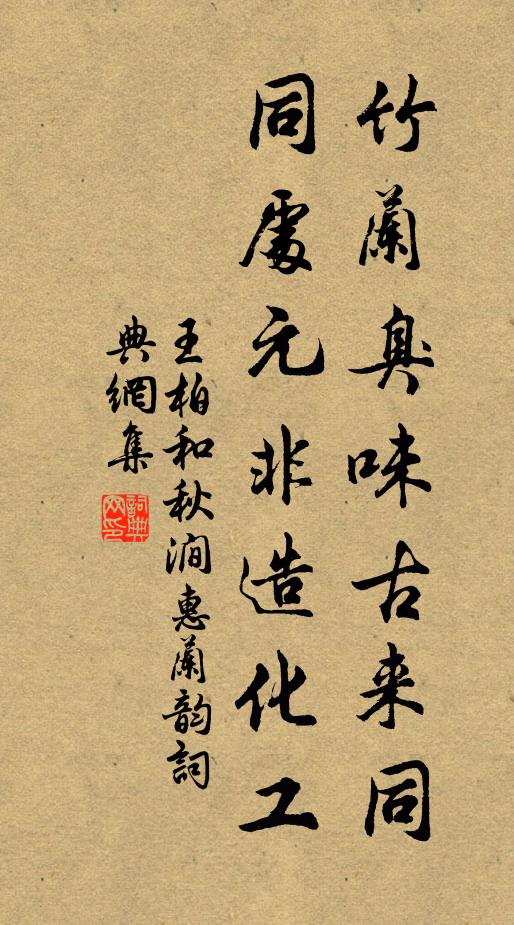 竹蘭臭味古来同
同處元非造化工
王柏和秋澗惠蘭韵詞
典網集
詞典網印